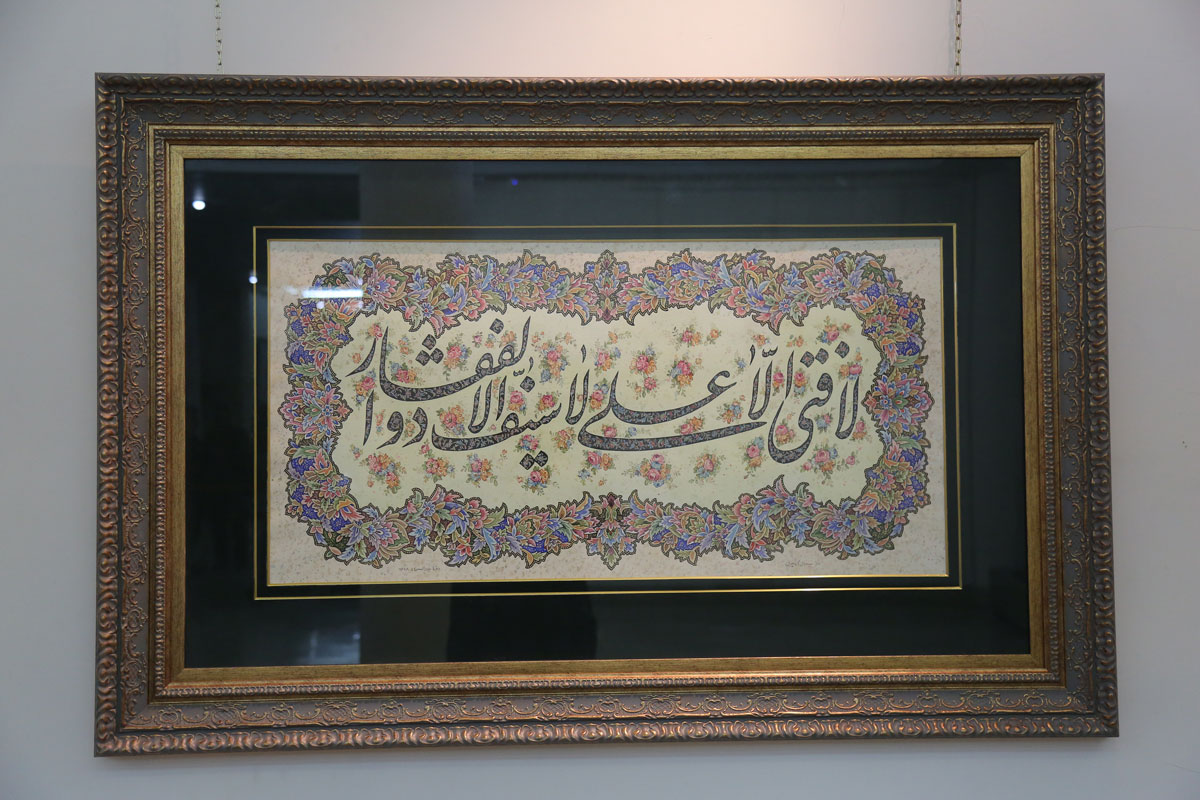 لا فتی الّا علی لا سیف الّا ذوالفقار